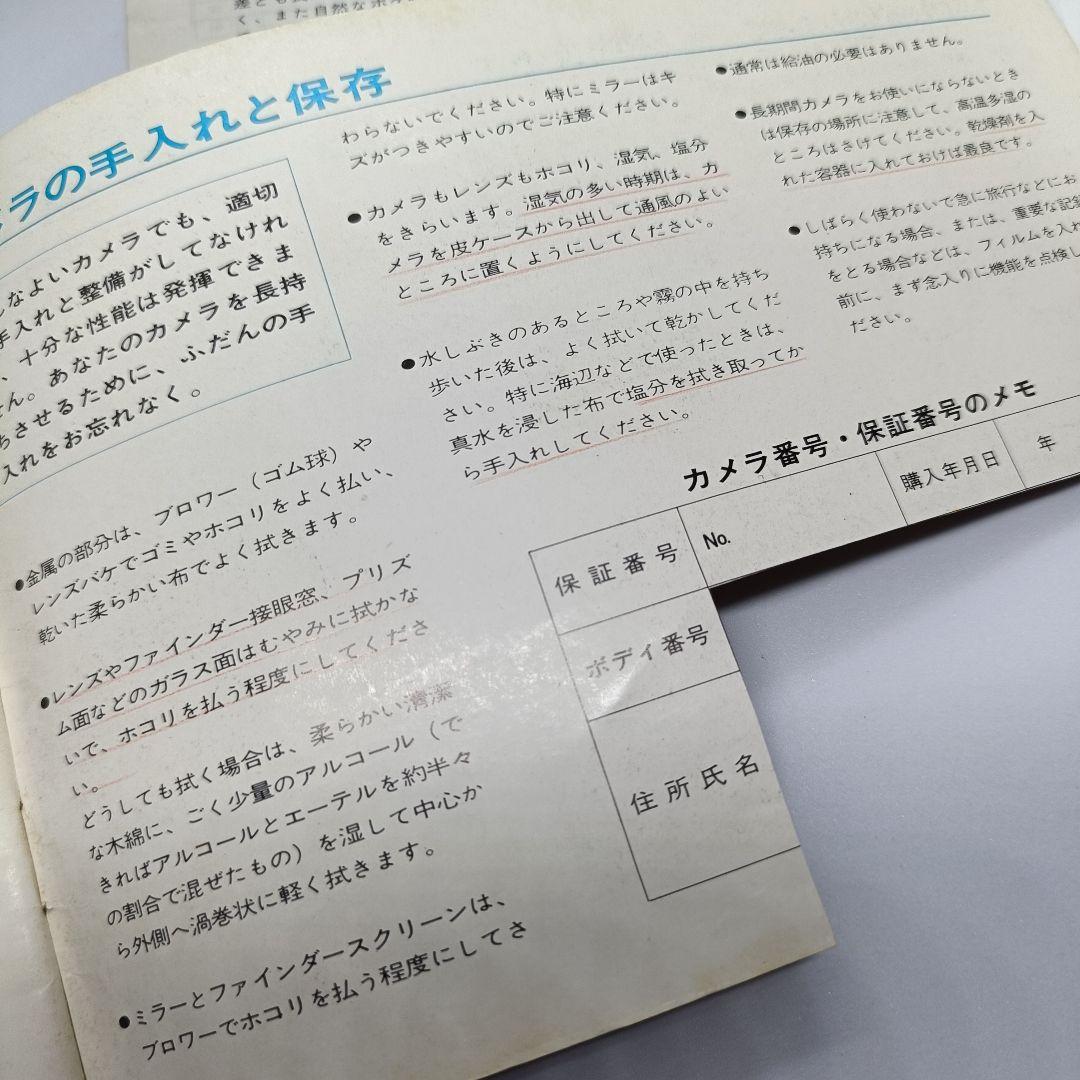 く、また自然なボ
ラの手入れと保存
なよいカメラでも、適切
手入れと整備がしてなけれ
、十分な性能は発揮できま
せん。あなたのカメラを長持
ちさせるために、ふだんの手
入れをお忘れなく。
●金属の部分は、ブロワー（ゴム球）や
レンズバケでゴミやホコリをよく払い、
乾いた柔らかい布でよく拭きます。
●レンズやファインダー接眼窓、プリズ
ム面などのガラス面はむやみに拭かな
いで、ホコリを払う程度にしてくださ
い。
どうしても拭く場合は、柔らかい清潔
な木綿に、ごく少量のアルコール（で
きればアルコールとエーテルを約半々
の割合で混ぜたもの）を湿して中心か
ら外側へ渦巻状に軽く拭きます。
●ミラーとファインダースクリーンは、
ブロワーでホコリを払う程度にしてさ
わらないでください。特にミラーはキ
ズがつきやすいのでご注意ください。
●カメラもレンズもホコリ、湿気、塩分
をきらいます。湿気の多い時期は、カ
メラを皮ケースから出して通風のよい
ところに置くようにしてください。
●水しぶきのあるところや霧の中を持ち
歩いた後は、よく拭いて乾かしてくだ
さい。特に海辺などで使ったときは、
真水を浸した布で塩分を拭き取ってか
ら手入れしてください。
●通常は給油の必要はありません。
●長期間カメラをお使いにならないとき
は保存の場所に注意して、高温多湿の
ところはさけてください。乾燥剤を入
れた容器に入れておけば最良です。
●しばらく使わないで急に旅行などにお
持ちになる場合、または、重要な記録
をとる場合などは、フィルムを入れ
前に、まず念入りに機能を点検し
ださい。
カメラ番号・保証番号のメモ
保証番号 No. 購入年月日 年
ボディ番号
住所氏名